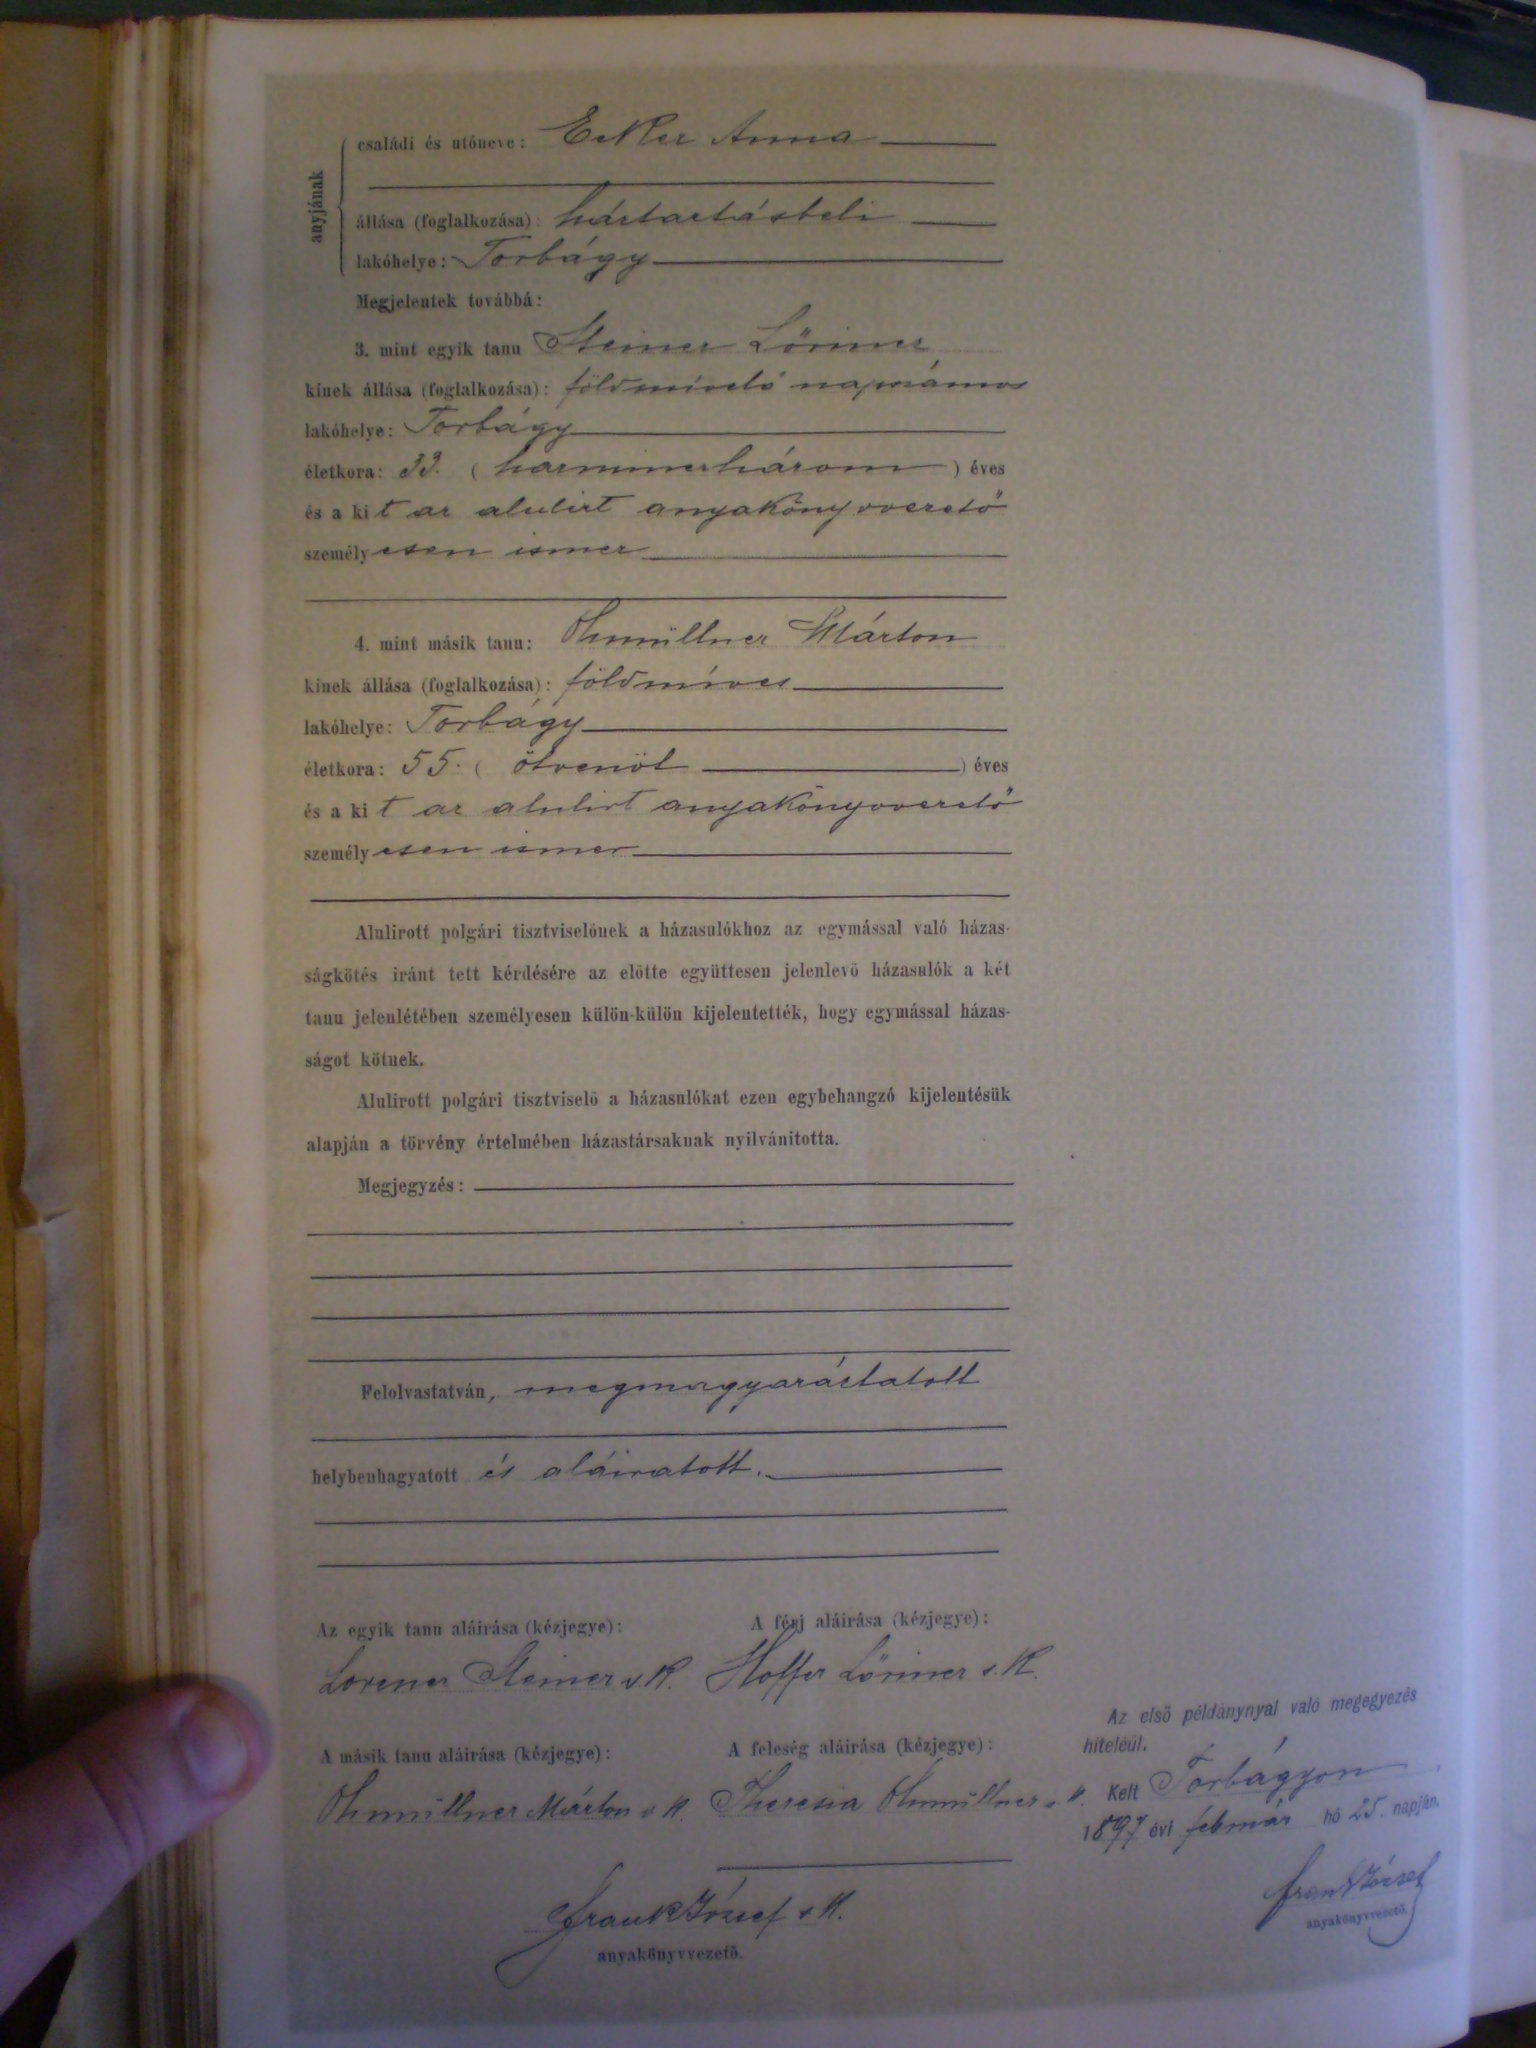 anyjának
családi és utóneve: Ecker Anna
állása (foglalkozása): háztartásbeli
lakóhelye: Torbágy
Megjelentek továbbá:
3. mint egyik tanu Steiner Lörincz
kinek állása (foglalkozása): földmívelő napszámos
lakóhelye: Torbágy
életkora: 33. (harminczhárom) éves
és a kit az alulirt anyakönyvvezető
személyesen ismer
4. mint másik tanu: Ohmüllner Márton
kinek állása (foglalkozása): földmíves
lakóhelye: Torbágy
életkora: 55. (ötvenöt) éves
és a kit az alulirt anyakönyvvezető
személyesen ismer
Alulirott polgári tisztviselőnek a házasulókhoz az egymással való házas-
ságkötés iránt tett kérdésére az előtte együttesen jelenlevő házasulók a két
tanu jelenlétében személyesen külön-külön kijelentették, hogy egymással házas-
ságot kötnek.
Alulirott polgári tisztviselő a házasulókat ezen egybehangzó kijelentésük
alapján a törvény értelmében házastársaknak nyilvánitotta.
Megjegyzés:
Felolvastatván, megmagyaráztatott
helybenhagyatott és aláiratott.
Az egyik tanu aláirása (kézjegye): A férj aláirása (kézjegye):
Lorencz Steiner s. k. Hoffer Lörincz s. k.
A másik tanu aláirása (kézjegye): A feleség aláirása (kézjegye):
Ohmüllner Márton s. k. Theresia Ohmüllner s. k.
Frank József s. k.
anyakönyvvezető.
Az első példánynyal való megegyezés
hiteléül.
Kelt Torbágyon
1897 évi február hó 25. napján.
Frank József
anyakönyvvezető.